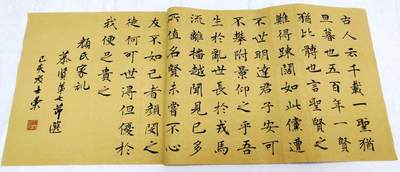 古人云千載一聖猶
旦暮也五百年一賢
猶比髆也言聖賢之
難得踈闊如此儻遭
不世明達君子安可
不攀附景仰之乎吾
生於亂世長於戎馬
流離播越聞見已多
所值名賢未嘗不心
友不如己者顏閔之
徒何可世得但優於
我便足貴之
顏氏家訓
慕賢第七節選
己亥